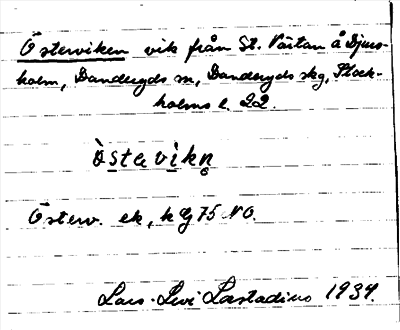 Österviken vik från St. Värtan å Djurs-
holm, Danderyds sn, Danderyds skg, Stock-
holms l. 22.
ò̀stavikn̥
Österv. ek, kbl 75 NO.
Lars-Levi Læstadius 1934.